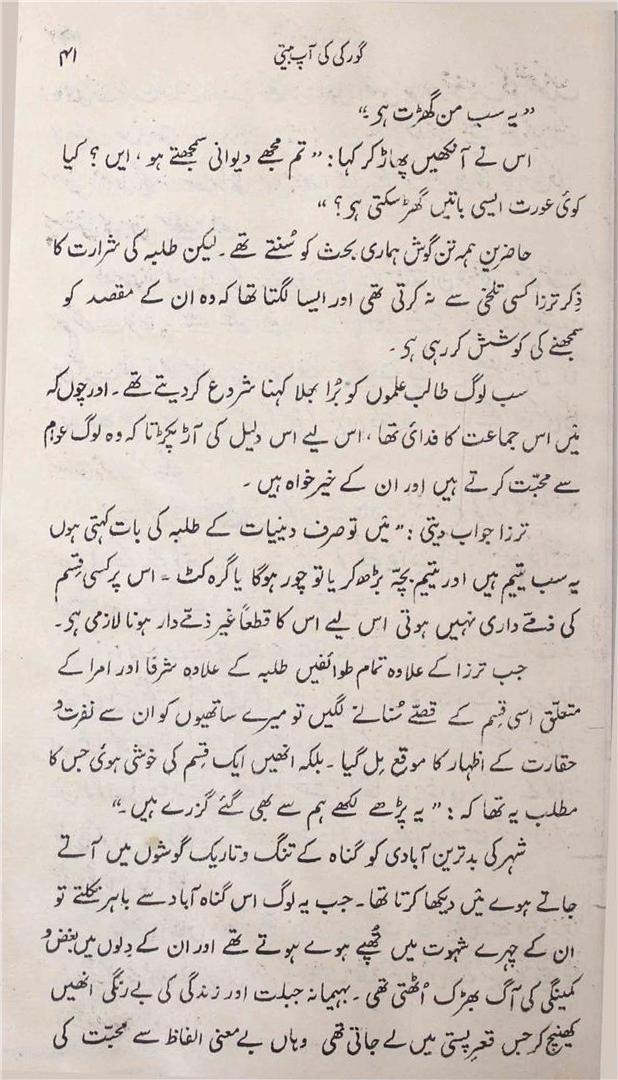 گورکی کی آپ بیتی ۴۱
”یہ سب من گھڑت ہی۔“
اس نے آنکھیں پھاڑ کر کہا: ”تم مجھے دیوانی سمجھتے ہو، ایں؟ کیا
کوئی عورت ایسی باتیں گھڑ سکتی ہی؟“
حاضرین ہمہ تن گوش ہماری بحث کو سُنتے تھے۔ لیکن طلبہ کی شرارت کا
ذِکر ترزا کسی تلخی سے نہ کرتی تھی اور ایسا لگتا تھا کہ وہ ان کے مقصد کو
سمجھنے کی کوشش کر رہی ہی۔
سب لوگ طالب علموں کو بُرا بھلا کہنا شروع کر دیتے تھے۔ اور چوں کہ
میَں اس جماعت کا فدائی تھا، اس لیے اس دلیل کی آڑ پکڑتا کہ وہ لوگ عوام
سے محبّت کرتے ہیں اور ان کے خیر خواہ ہیں۔
ترزا جواب دیتی: ”میَں تو صرف دینیات کے طلبہ کی بات کہتی ہوں
یہ سب یتیم ہیں اور یتیم بچّہ بڑھ کر یا تو چور ہوگا یا گرہ کٹ۔ اس پر کسی قِسم
کی ذمّے داری نہیں ہوتی اس لیے اس کا قطعاً غیر ذمّے دار ہونا لازمی ہی۔
جب ترزا کے علاوہ تمام طوائفیں طلبہ کے علاوہ شرفا اور امرا کے
متعلّق اسی قِسم کے قصّے سُنانے لگیں تو میرے ساتھیوں کو ان سے نفرت و
حقارت کے اظہار کا موقع مِل گیا۔ بلکہ انھیں ایک قِسم کی خوشی ہوئی جس کا
مطلب یہ تھا کہ: ”یہ پڑھے لکھے ہم سے بھی گئے گزرے ہیں۔“
شہر کی بدترین آبادی کو گناہ کے تنگ و تاریک گوشوں میں آتے
جاتے ہوے میَں دیکھا کرتا تھا۔ جب یہ لوگ اس گناہ آباد سے باہر نکلتے تو
ان کے چہرے شہوت میں تُھپے ہوے ہوتے تھے اور ان کے دِلوں میں بغض و
کمینگی کی آگ بھڑک اُٹھتی تھی۔ بہیمانہ جبلت اور زندگی کی بے رنگی انھیں
کھینچ کر جس قعرِ پستی میں لے جاتی تھی وہاں بے معنی الفاظ سے محبّت کی